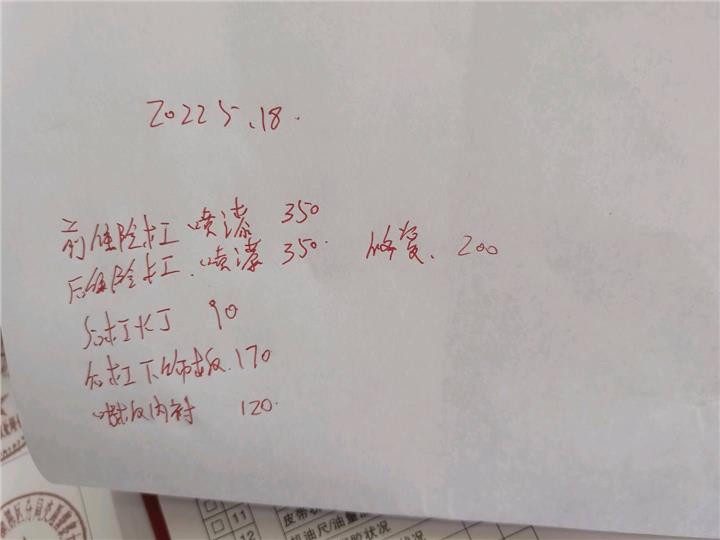 2022 5.18.
前保险杠 喷漆 350
后保险杠.喷漆 350. 修复. 200
后杠长丁 90
后杠下饰板.170
内衬 120.
11 皮带
12 机油尺/油量
状况